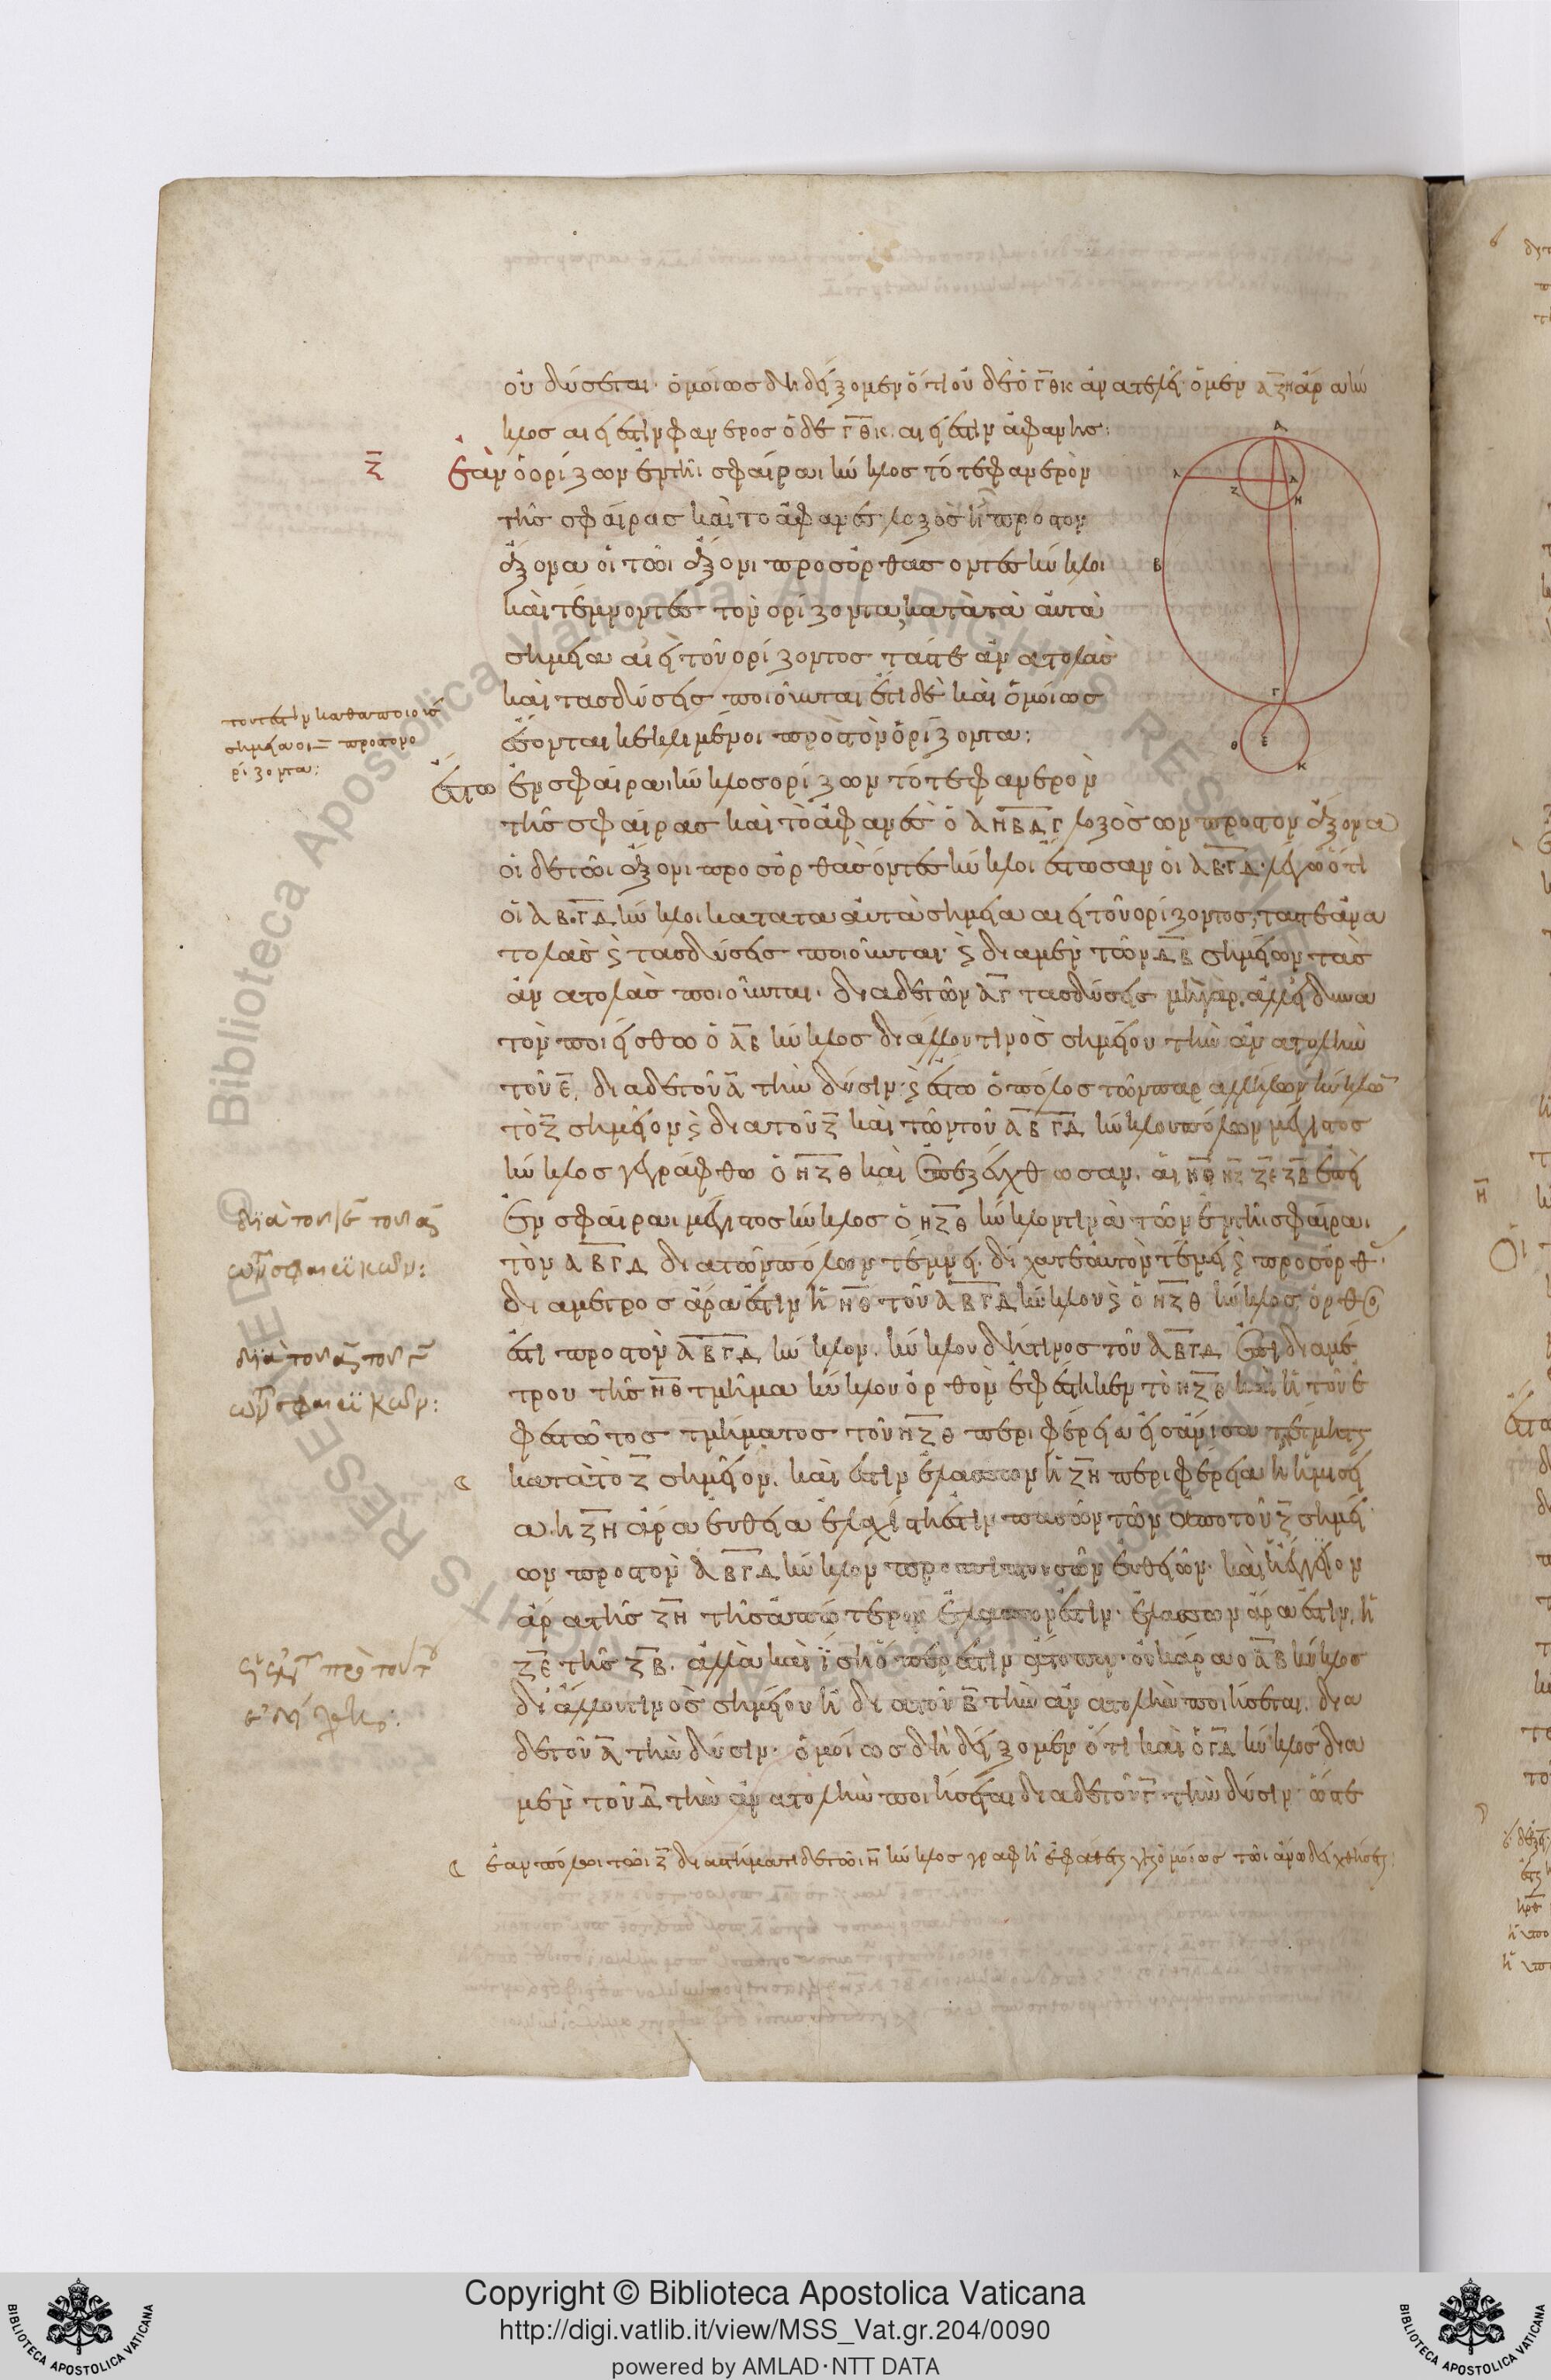 οὐ δύσεται· ὁμοίως δὴ δείξομεν ὅτι οὐδὲ ὁ ΓΘΚ ἀνατελεῖ· ὁ μὲν ΑΖΗ ἄρα κύ
κλος αἰεί ἐστιν φανερὸς ὁ δὲ ΓΘΚ αἰεί ἐστιν ἀφανής:
ζ ἐὰν ὁ ὁρίζων ἐν τῆι σφαίραι κύκλος τό τε φανερὸν
τῆς σφαίρας καὶ τὸ ἀφανές λοξὸς ἦι πρὸς τὸν
ἄξονα οἱ τῶι ἄξονι πρὸς ὀρθὰς ὄντες κύκλοι
καὶ τέμνοντες τὸν ὁρίζοντα, κατὰ τὰ αὐτὰ
σημεῖα αἰεὶ τοῦ ὁρίζοντος τάς τε ἀνατολὰς
καὶ τὰς δύσεις ποιοῦνται ἔτι δὲ καὶ ὁμοίως
ἔσονται κεκλιμένοι πρὸς τὸν ὁρίζοντα:
ἔστω ἐν σφαίραι κύκλος ὁρίζων τό τε φανερὸν
τῆς σφαίρας καὶ τὸ ἀφανὲς ὁ ΑΗΒΔΓ λοξὸς ὢν πρὸς τὸν ἄξονα
οἱ δὲ τῶι ἄξονι πρὸς ὀρθὰς ὄντες κύκλοι ἔστωσαν οἱ ΑΒ·ΓΔ· λέγω ὅτι
οἱ ΑΒ·ΓΔ κύκλοι κατὰ τὰ αὐτὰ σημεῖα αἰεὶ τοῦ ὁρίζοντος, τάς τε ἀνα
τολὰς ϗ τὰς δύσεις ποιοῦνται· ϗ διὰ μὲν τῶν ΔΒ σημείων τὰς
ἀνατολὰς ποιοῦνται· διὰ δὲ τῶν ΑΓ τὰς δύσεις μὴ γάρ, ἀλλ' εἰ δυνα
τὸν ποιείσθω ὁ ΑΒ κύκλος δι' ἄλλου τινὸς σημείου τὴν ἀνατολὴν
τοῦ Ε, διὰ δὲ τοῦ Α τὴν δύσιν· ϗ ἔστω ὁ πόλος τῶν παραλλήλων κύκλων
τὸ Ζ σημεῖον ϗ διὰ τοῦ Ζ καὶ τῶν τοῦ ΑΒΓΔ κύκλου πόλων μέγιστος
κύκλος γεγράφθω ὁ ΗΖΘ καὶ ἐπεζεύχθωσαν, αἱ ΗΘ ΗΖ ΖΕ ΖΒ ἐπεὶ
ἐν σφαίραι μέγιστος κύκλος ὁ ΗΖΘ κύκλον τινὰ τῶν ἐν τῆι σφαίραι
τὸν ΑΒΓΔ διὰ τῶν πόλων τέμνει· δίχα τε αὐτὸν τέμνει ϗ πρὸς ὀρθάς·
διάμετρος ἄρα ἐστὶν ἡ ΗΘ τοῦ ΑΒΓΔ κύκλου ϗ ὁ ΗΖΘ κύκλος ὀρθός
ἐστι πρὸς τὸν ΑΒΓΔ κύκλον. κύκλου δή τινος τοῦ ΑΒΓΔ ἐπὶ διαμέ
τρου τῆς ΗΘ τμῆμα κύκλου ὀρθὸν ἐφέστηκεν τὸ ΗΖΘ καὶ ἡ τοῦ ἐ
φεστῶτος τμήματος τοῦ ΗΖΘ περιφέρεια εἰς ἄνισα τέτμηται
κατὰ τὸ Ζ σημεῖον. καί ἐστιν ἐλάσσων ἡ ΖΗ περιφέρεια ἢ ἡμίσει
α. ἡ ΖΗ ἄρα εὐθεῖα ἐλαχίστη ἐστὶν πασῶν τῶν ἀπὸ τοῦ Ζ σημεί
ων πρὸς τὸν ΑΒΓΔ κύκλον προσπιπτουσῶν εὐθειῶν· καὶ ἡ ἔγγειον
ἄρα τῆς ΖΗ τῆς ἀπώτερον ἐλάσσων ἐστίν· ἐλάσσων ἄρα ἐστὶν, ἡ
ΖΕ τῆς ΖΒ. ἀλλὰ καὶ ἴση ὅπερ ἐστὶν ἄτοπον· οὐκ ἄρα ὁ ΑΒ κύκλος
δι' ἄλλου τινὸς σημείου ἢ διὰ τοῦ Β τὴν ἀνατολὴν ποιήσεται. διὰ
δὲ τοῦ Α τὴν δύσιν· ὁμοίως δὴ δείξομεν ὅτι καὶ ὁ ΓΔ κύκλος διὰ
μὲν τοῦ Δ τὴν ἀνατολὴν ποιήσεται διὰ δὲ τοῦ Γ τὴν δύσιν· ὥστε
ἐὰν πόλωι τῶι Ζ διαστήματι δὲ τῶι Η κύκλος γραφῆ
τουτέστιν καθ' ἃ ποιοῦσι
σημεῖα οἱ πρὸς τὸν ὁ
ρίζοντα:
διὰ τοῦ ιε τοῦ α
τῶν σφαιρικῶν:
διὰ τοῦ α τοῦ γ
τῶν σφαιρικῶν:
Α
Λ
Ζ
Η
Β
Γ
Θ
Ε
Κ
Η
© Biblioteca Apostolica Vaticana ALL RIGHTS RESERVED
Copyright © Biblioteca Apostolica Vaticana
http://digi.vatlib.it/view/MSS_Vat.gr.204/0090
powered by AMLAD·NTT DATA
BIBLIOTECA APOSTOLICA VATICANA
BIBLIOTECA APOSTOLICA VATICANA